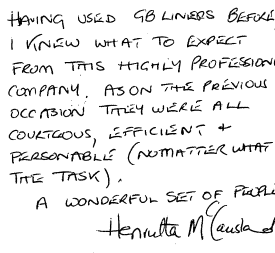 HAVING USED GB LINERS BEFORE
I KNEW WHAT TO EXPECT
FROM THIS HIGHLY PROFESSION
COMPANY. AS ON THE PREVIOUS
OCCASION THEY WERE ALL
COURTEOUS, EFFICIENT +
PERSONABLE (NO MATTER WHAT
THE TASK).
A WONDERFUL SET OF PEOPL
Henrietta M